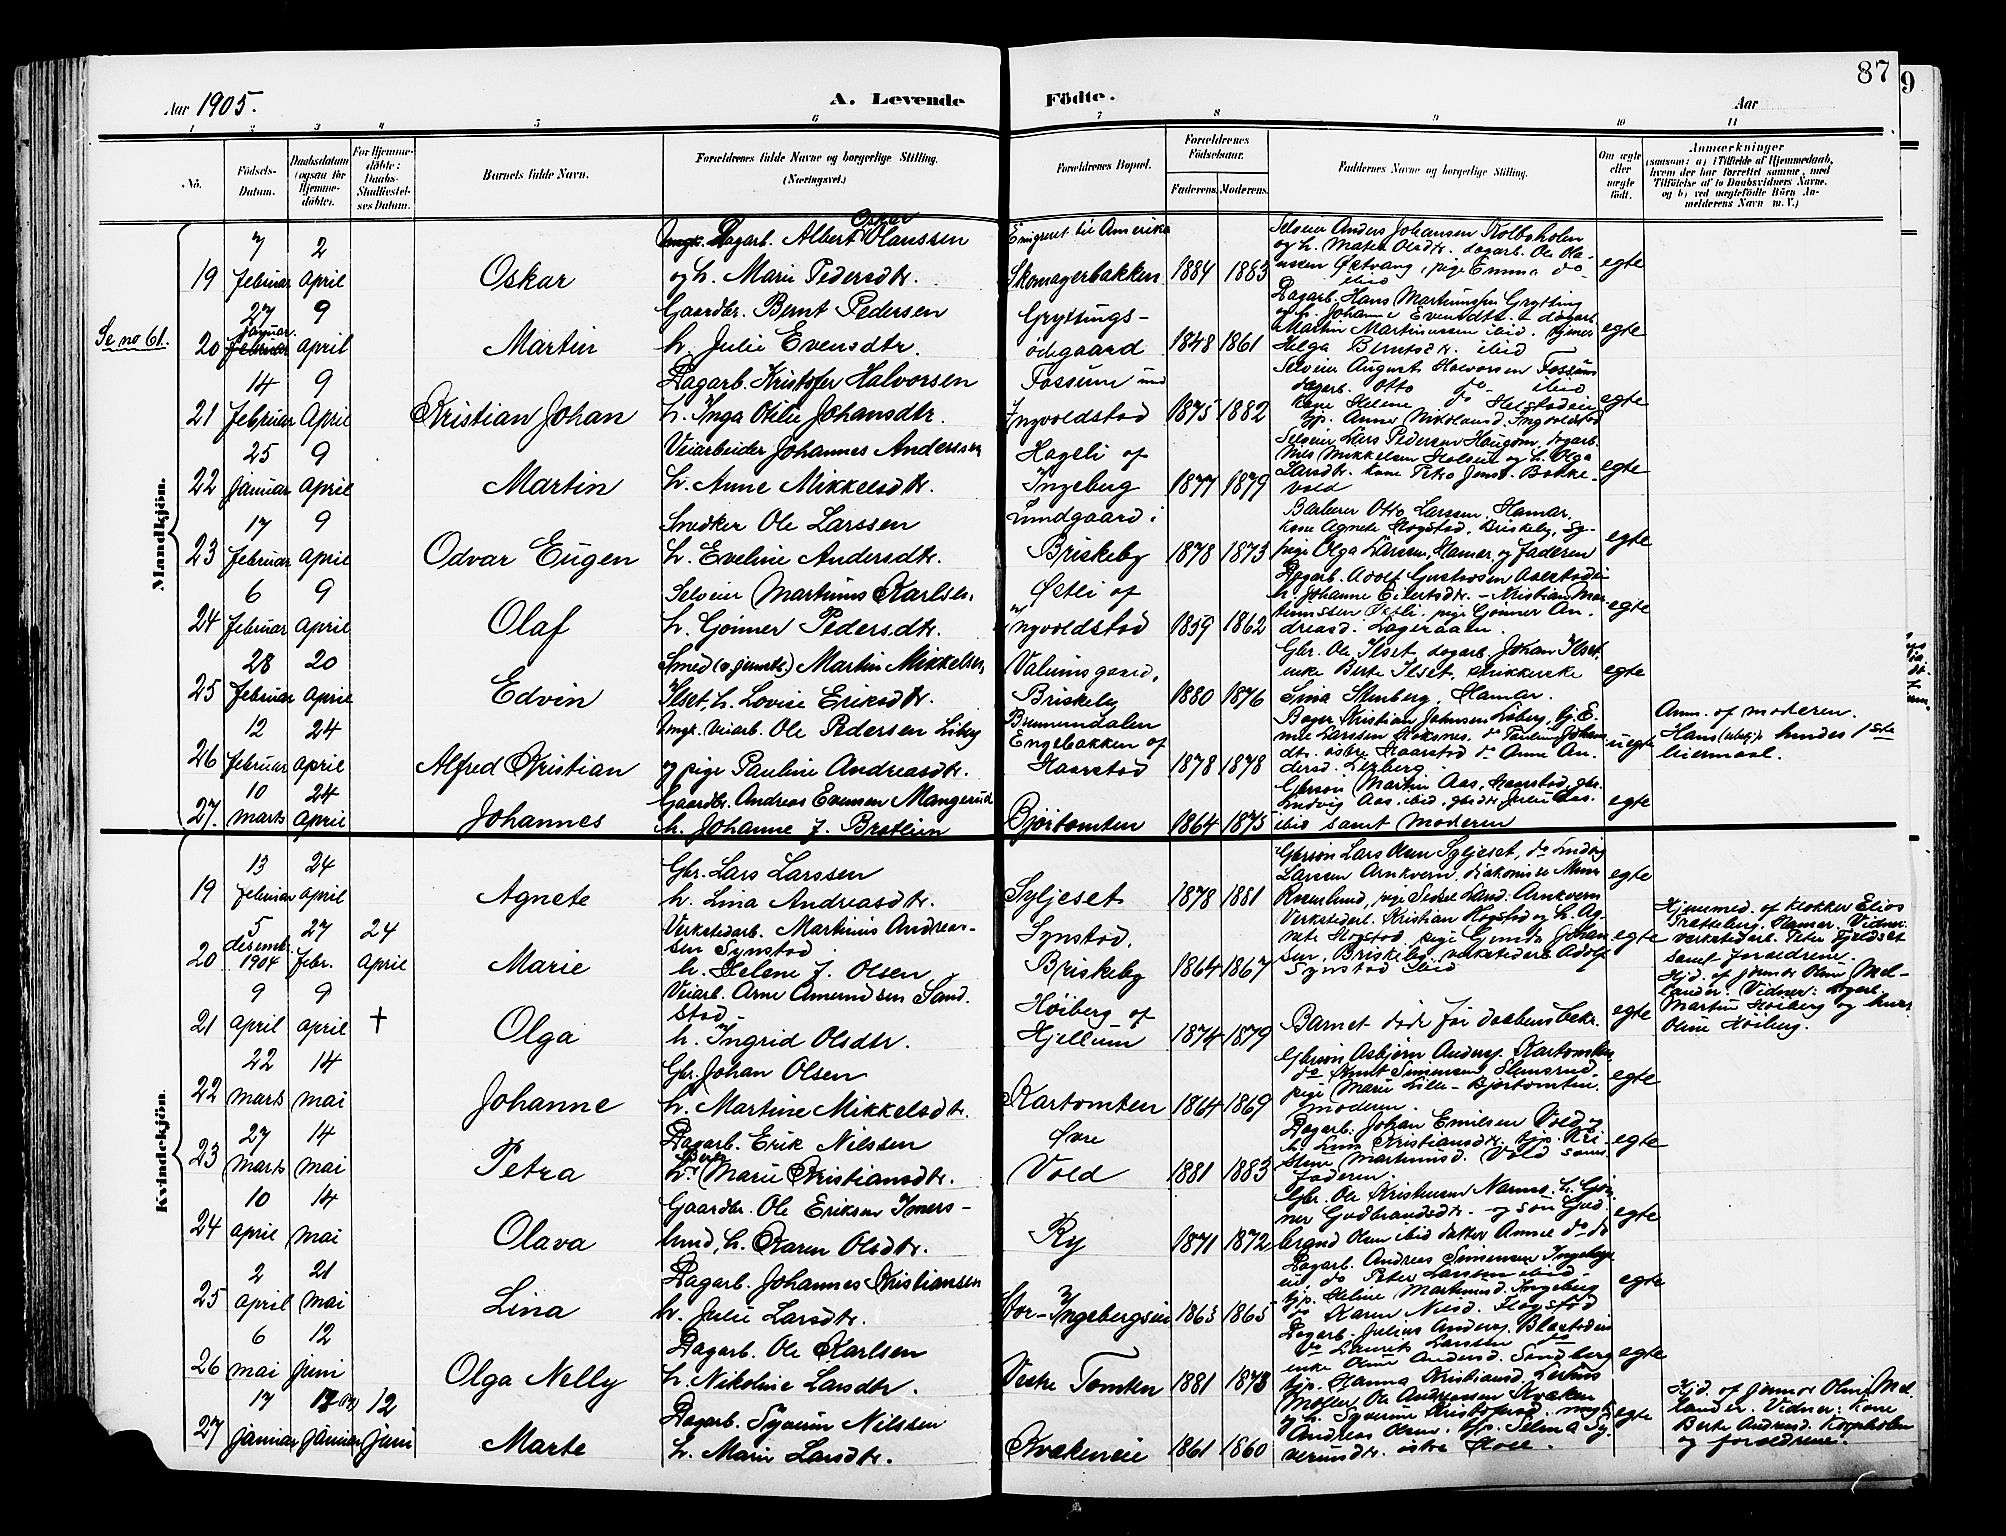 87
Aar 1905.
A. Levende Födte.
Aar
1 2 3 4 5 6 7 8 9 10 11
No. Födsels-Datum. Daabsdatum (ogsaa for Hjemme-døbte). For Hjemme-døbte: Daabs-Stadfæstel-ses Datum. Barnets fulde Navn. Forældrenes fulde Navne og borgerlige Stilling. (Næringsvei.)
Forældrenes Bopæl. Forældrenes Fødselsaar. Faderens. Moderens. Faddernes Navne og borgerlige Stilling. Om ægte eller uægte født. Anmærkninger (saasom: a) i Tilfælde af Hjemmedaab, hvem der har forrettet samme, med Tilføielse af to Daabsvidners Navne, og b) ved uægtefødte Börn An-melderens Navn m. V.)
Mandkjön.
19 7 Februar 2 April Oskar Ungk. Dagarb. Albert Oskar Olaussen
og h. Marie Pedersdtr.
Emigreret til Amerika
Skomagerbakken 1884 1883
Selveier Anders Johansen Kolbsholen
og h. Mathea Olsdtr. dagarb. Ole Ola-
ussen Østvang, pige Emma do
ibid
egte
Se no 61.
20 27 Januar Februar 9 April Martin Gaardbr. Bernt Pedersen
h. Julie Evensdtr.
Gryttings-
ødegaard 1848 1861
Dagarb. Hans Martinussen Grytting
og h. Johanne Evensdtr. dagarb.
Martin Martinussen ibid. pige
Helga Berntsdtr. ibid
egte
21 14 Februar 9 April Kristian Johan Dagarb. Kristofer Halvorsen
h. Inga Otilie Johansdtr.
Fossum und
Ingvoldstad 1875 1882
Selveier August Halvorsen Fossum
dagarb. Otto do ibid
kone Helene do Helstadeie
tjp. Anne Nikolaisd. Ingvoldstad
egte
22 25 Januar 9 April Martin Veiarbeider Johannes Anderssen
h. Anne Mikkelsdtr.
Hageli af
Ingeberg 1877 1879
Selveier Lars Pedersen Haugom, dagarb.
Nils Mikkelsen Holseie og h. Olga
Larsdtr. kone
vold
egte
23 17 Februar 9 April Odvar Eugen Snedker Ole Larssen
h. Eveline Andersdtr.
Lundgaard i
Briskeby 1878 1873
Barberer Otto Larssen, Hamar,
kone Agnete Hogstad, Briskeby, Sy-
pige Olga Larssen, Hamar, og faderen
egte
24 6 Februar 9 April Olaf Selveier Martinus Karlsen
h. Gøiner Pedersdtr.
Østli af
Ingvoldstad 1859 1862
Dagarb. Adolf Gustavsen
h. Johanne Eilertsdtr. – Kristian Mar-
tinussen Østli. pige Gøiner An-
dreasd. Lageraaen.
egte
25 28 Februar 20 April Edvin Smed (o. jernstr.) Martin Mikkelsen
Ilset, h. Lovise Eriksdtr.
Valumsgaard,
Briskeby 1880 1876
Gbr. Ole Ilset, dagarb. Johan Ilset,
enke Berte Ilset, strikkerske
Lina Stenberg, Hamar.
egte
26 12 Februar 24 April Alfred Kristian Ungk. Veiarb. Ole Pedersen Liberg
og pige Pauline Andreasdtr.
Brummundalen
Engebakken af
Haarstad 1878 1878
Bager Kristian Johnsen Liberg, tj. E-
mil Larssen Stoksnes, do Pauline Johan
dtr. østre Haarstad do Anne An-
dersd. Lizberg
uegte
Anm. af moderen.
Hans hendes 1ste
leiermaal.
27. 10 Marts 24 April Johannes Gaardbr. Andreas Evensen Mangerud
h. Johanne J. Bratlien
Bjørtomten 1864 1875
Gbrsøn Martin Aas, Haarstad, gbr.
Ludvig Aas, ibid, gbrdtr. Julie Aas
ibid samt moderen
egte
Kvindekjön.
19 13 Februar 24 April Agnete Gbr. Lars Larssen
h. Lina Andreasdtr.
Syljeset 1878 1881
Gbrsøn Lars Olsen Syljeset, do Ludvig
Larssen Arnkvern, diakonisse
Rosenlund, pige Sedsel Land. Arnkvern
egte
20 5 desemb. 1904 27 Febr. 24 April Marie Verkstedarb. Martinius Andreas-
sen Synstad
h. Helene J. Olsen
Synstad,
Briskeby 1864 1867
Verkstedarb. Kristian Hogstad og h. Ag-
nete Hogstad, pige Gunda Johan
sen, Briskeby, verkstedarb Adolf
Synstad ibid
egte
Hjemmed. af klokker Elias
Trætteberg, Hamar. Vidner:
verkstedarb. Peter Fjeldset
samt forældrene.
21 9 April 9 April † Olga Veiarb. Arne Amundsen Sand.
stad
h. Ingrid Olsdtr.
Høiberg af
Hjellum 1874 1879
Barnet døde før daabens bekr.
egte
Hjd. af jormor Oline Mel-
lander. Vidner: dagarb.
Martin Høiberg og kone
Oline Høiberg.
22 22 Marts 14 Mai Johanne Gbr. Johan Olsen
h. Martine Mikkelsdtr.
Kartomten 1864 1869
Gbrsøn Asbjørn Andersj. Kartomten
do Knut Simensen, Stensrud,
pige Marie Lille-Bjørtomten,
moderen.
egte
23 27 Marts 14 Mai Petra Dagarb. Erik Nilssen
h. Marie Kristiansdtr.
Øvre
Vold 1881 1883
Dagarb. Johan Emilsen Vold og
h. Lina Kristiansdtr. tjp. Kri-
stine Martinusd. Vold samt
faderen.
egte
24 10 April 14 Mai Olava Gaardbr. Ole Eriksen Imers-
lund, h. Karen Olsdtr.
Ry 1871 1872
Gbr. Ole Kristensen Narmo. h. Gøi-
ner Gudbrandsdtr. og søn Gud-
brand Olsen ibid datter Anne do do
egte
25 2 April 21 Mai Lina Dagarb. Johannes Kristiansen
h. Julie Larsdtr.
Stor-Ingebergseie 1863 1865
Dagarb. Andreas Simensen Ingebergs
eie, do Peter Larssen ibid.
tjp. Heline Martinusd. Ingeberg
do Karen Nilsd. Flagstad
egte
26 6 Mai 12 Juni Olga Nelly Dagarb. Ole Karlsen
h. Nikoline Larsdtr.
Vestre Tomten 1881 1873
Dagarb. Julius Andersj. Blæstadeie
do Laurits Larssen do
enke Oline Andersd. Sandberg
tjp. Hanna Kristiansd.
egte
27 17 Januar 17 Januar 12 Juni Marte Dagarb. Syverin Nilssen
h. Marie Larsdtr.
Kvækeneie 1861 1860
Møller Ole Andreassen Kvæken
og h. Syverine Kristofersd. ungk.
Andreas Olsen. tjp. Selma Sy-
verinsdtr. østre Hoel.
egte
Hjd. af jormor Oline Mel-
lander. Vidner: kone
Berte Andersd. Kornholen
og forældrene.